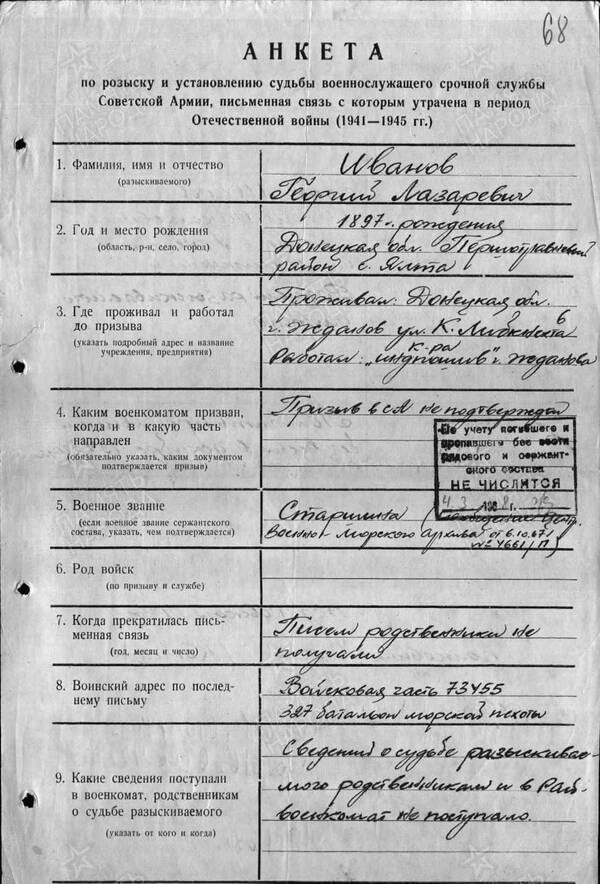 68
АНКЕТА
по розыску и установлению судьбы военнослужащего срочной службы
Советской Армии, письменная связь с которым утрачена в период
Отечественной войны (1941—1945 гг.)
1. Фамилия, имя и отчество
(разыскиваемого)
Иванов
Георгий Лазаревич
2. Год и место рождения
(область, р-н, село, город)
1897 г. рождения
Донецкая обл. Першотравневый
район с. Ялта
3. Где проживал и работал
до призыва
(указать подробный адрес и название
учреждения, предприятия)
Проживал: Донецкая обл.
г. Жданов ул. К. Либкнехта
Работал: "индпошив" г. Жданова
4. Каким военкоматом призван,
когда и в какую часть
направлен
(обязательно указать, каким документом
подтверждается призыв)
Призыв в СА не подтвержден
По учету погибшего и
пропавшего без вести
рядового и сержант-
ского состава
НЕ ЧИСЛИТСЯ
5. Военное звание
(если военное звание сержантского
состава, указать, чем подтверждается)
Старшина (сообщение Центр.
Военно-морского Архива от 6.10.67 г.
6. Род войск
(по призыву и службе)
7. Когда прекратилась пись-
менная связь
(год, месяц и число)
Писем родственники не
получали
8. Воинский адрес по послед-
нему письму
Войсковая часть 73455
327 батальон морской пехоты
9. Какие сведения поступали
в военкомат, родственникам
о судьбе разыскиваемого
(указать от кого и когда)
Сведений о судьбе разыскивае-
мого родственникам и в Рай-
военкомат не поступало.